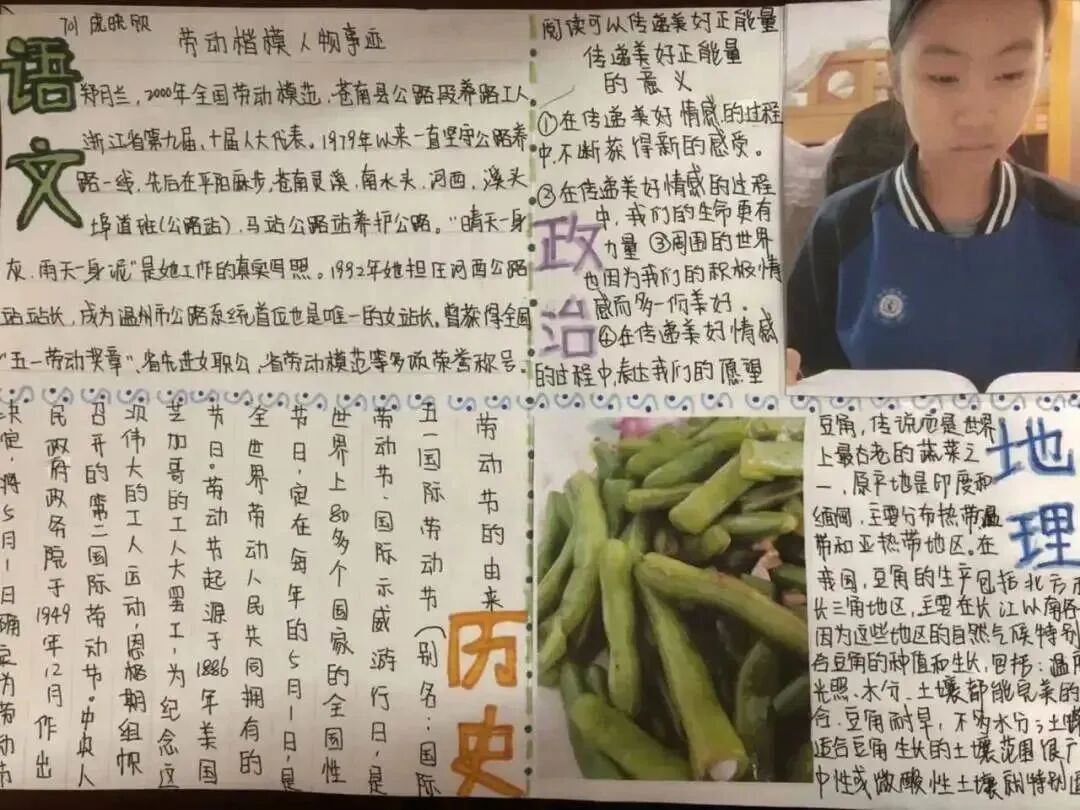 701 庞晓颀
语文
劳动楷模人物事迹
郑月兰，2000年全国劳动模范，苍南县公路段养路工人
浙江省第九届、十届人大代表。1979年以来一直坚守公路养
路一线，先后在平阳麻步，苍南灵溪，南水头，河西，溪头
埠道班(公路站)，马站公路站养护公路。“晴天一身
灰，雨天一身泥”是她工作的真实写照。1992年她担任河西公路
站站长，成为温州市公路系统首位也是唯一的女站长。曾获得全国
“五一劳动奖章”、省先进女职公、省劳动模范等多项荣誉称号。
阅读可以传递美好正能量
传递美好正能量
的意义
①在传递美好情感的过程
中，不断获得新的感受。
③在传递美好情感的过程
中，我们的生命更有
力量③周围的世界
也因为我们的积极情
感而多一份美好．
④在传递美好情感
的过程中，表达我们的愿望
政治
劳动节的由来
五一国际劳动节（别名：国际
劳动节、国际示威游行日，是
世界上80多个国家的全国性
节日，定在每年的5月1日，是
全世界劳动人民共同拥有的
节日。劳动节起源于1886年美国
芝加哥的工人大罢工，为纪念这
次伟大的工人运动，恩格期组帜
召开的第二国际劳动节。中央人
民政府政务院于1949年12月作出
决定，将5月1日确定为劳动节
历史
豆角，传说应是世界
上最古老的蔬菜之
一，原平地是印度和
缅甸，主要分布热带温
带和亚热带地区。在
我国，豆角的生产包括北方
长三角地区，主要在长江以南
因为这些地区的自然气候特别
合豆角的种值和生长，包括：温
光照、水分、土壤都能完美的
合．豆角耐旱，不够水分；土
适合豆角生长的土壤范围很广
中性或微酸性土壤就特别适
地理